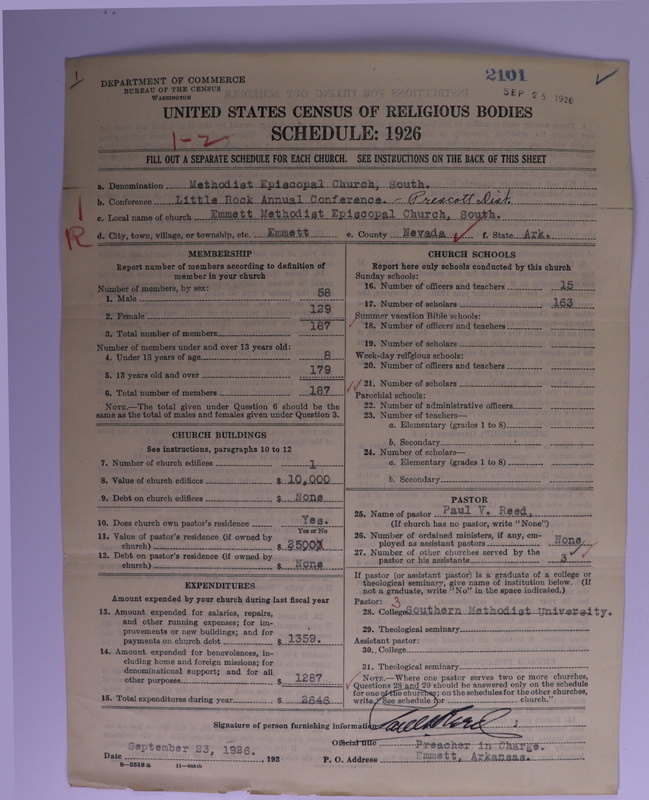 1
DEPARTMENT OF COMMERCE
BUREAU OF THE CENSUS
WASHINGTON
2101
SEP 25 1926
UNITED STATES CENSUS OF RELIGIOUS BODIES
SCHEDULE: 1926
1-2
FILL OUT A SEPARATE SCHEDULE FOR EACH CHURCH. SEE INSTRUCTIONS ON THE BACK OF THIS SHEET
a. Denomination Methodist Episcopal Church, South.
b. Conference Little Rock Annual Conference. - Prescott Dist.
c. Local name of church Emmett Methodist Episcopal Church, South.
R
d. City, town, village, or township, etc. Emmett e. County Nevada f. State Ark.
MEMBERSHIP
Report number of members according to definition of
member in your church
Number of members, by sex:
1. Male 58
2. Female 129
3. Total number of members 187
Number of members under and over 13 years old:
4. Under 13 years of age 8
5. 13 years old and over 179
6. Total number of members 187
NOTE.—The total given under Question 6 should be the
same as the total of males and females given under Question 3.
CHURCH BUILDINGS
See instructions, paragraphs 10 to 12
7. Number of church edifices 1
8. Value of church edifices $ 10,000
9. Debt on church edifices $ None
10. Does church own pastor's residence Yes.
Yes or No
11. Value of pastor's residence (if owned by
church) $ 2500
12. Debt on pastor's residence (if owned by
church) $ None
EXPENDITURES
Amount expended by your church during last fiscal year
13. Amount expended for salaries, repairs,
and other running expenses; for im-
provements or new buildings; and for
payments on church debt $ 1359.
14. Amount expended for benevolences, in-
cluding home and foreign missions; for
denominational support; and for all
other purposes $ 1287
15. Total expenditures during year $ 2646
CHURCH SCHOOLS
Report here only schools conducted by this church
Sunday schools:
16. Number of officers and teachers 15
17. Number of scholars 163
Summer vacation Bible schools:
18. Number of officers and teachers
19. Number of scholars
Week-day religious schools:
20. Number of officers and teachers
21. Number of scholars
Parochial schools:
22. Number of administrative officers
23. Number of teachers—
a. Elementary (grades 1 to 8)
b. Secondary
24. Number of scholars—
a. Elementary (grades 1 to 8)
b. Secondary
PASTOR
25. Name of pastor Paul V. Reed,
(If church has no pastor, write "None")
26. Number of ordained ministers, if any, em-
ployed as assistant pastors None
27. Number of other churches served by the
pastor or his assistants 3
If pastor (or assistant pastor) is a graduate of a college or
theological seminary, give name of institution below. (If
not a graduate, write "No" in the space indicated.)
Pastor: 3
28. College Southern Methodist University.
29. Theological seminary
Assistant pastor:
30. College
31. Theological seminary
NOTE.—Where one pastor serves two or more churches,
Questions 28 and 29 should be answered only on the schedule
for one of the churches; on the schedules for the other churches,
write "See schedule for church."
Signature of person furnishing information
Official title Preacher in Charge.
Date September 23, 1926. 192
P. O. Address Emmett, Arkansas.